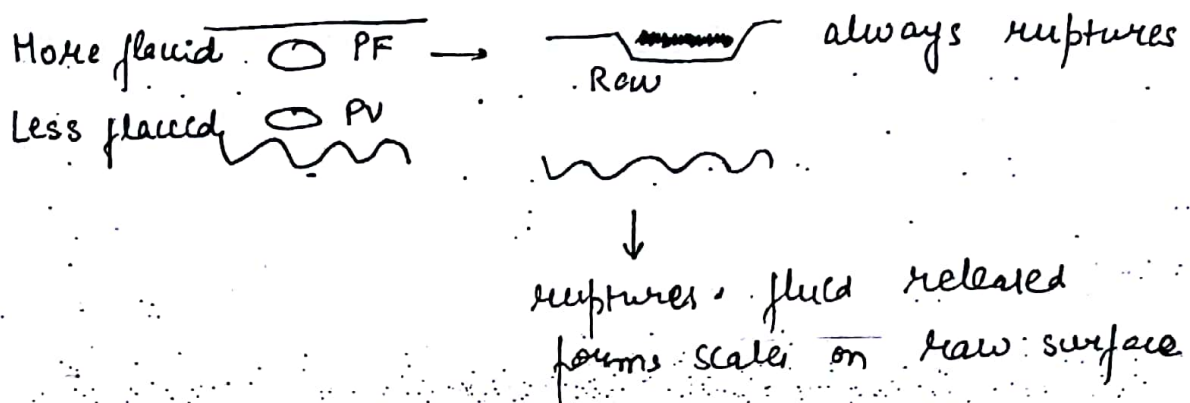 More flaccid PF → always ruptures
Raw
Less flaccid PV
↓
ruptures. fluid released
forms scales on raw surface